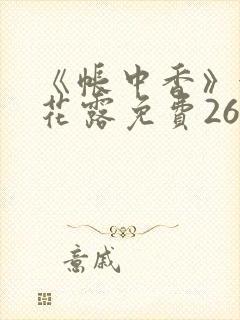 《帐中香》
花露免費26
意戚